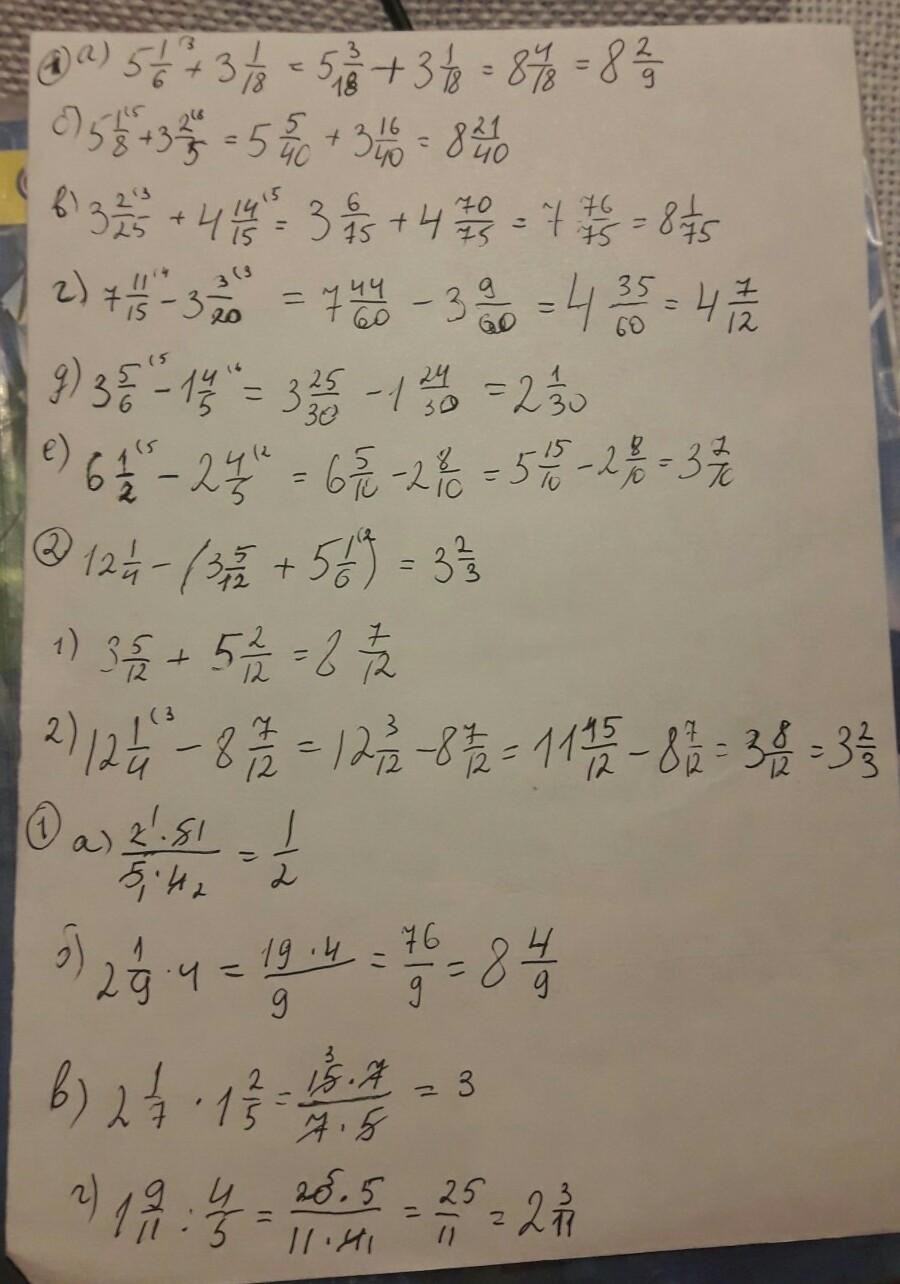 ① а) 5 1/6 (3 + 3 1/18 = 5 3/18 + 3 1/18 = 8 4/18 = 8 2/9
б) 5 1/8 (5 + 3 2/5 (8 = 5 5/40 + 3 16/40 = 8 21/40
в) 3 2/25 (3 + 4 14/15 (5 = 3 6/75 + 4 70/75 = 7 76/75 = 8 1/75
г) 7 11/15 (4 - 3 3/20 (3 = 7 44/60 - 3 9/60 = 4 35/60 = 4 7/12
д) 3 5/6 (5 - 1 4/5 (6 = 3 25/30 - 1 24/30 = 2 1/30
е) 6 1/2 (5 - 2 4/5 (2 = 6 5/10 - 2 8/10 = 5 15/10 - 2 8/10 = 3 7/10
② 12 1/4 - (3 5/12 + 5 1/6 (2) = 3 2/3
1) 3 5/12 + 5 2/12 = 8 7/12
2) 12 1/4 (3 - 8 7/12 = 12 3/12 - 8 7/12 = 11 15/12 - 8 7/12 = 3 8/12 = 3 2/3
① а) 2 1 · 5 1 / 5 1 · 4 2 = 1/2
б) 2 1/9 · 4 = 19 · 4 / 9 = 76/9 = 8 4/9
в) 2 1/7 · 1 2/5 = 15 3 · 7 / 7 · 5 = 3
г) 1 9/11 : 4/5 = 20 5 · 5 / 11 · 4 1 = 25/11 = 2 3/11